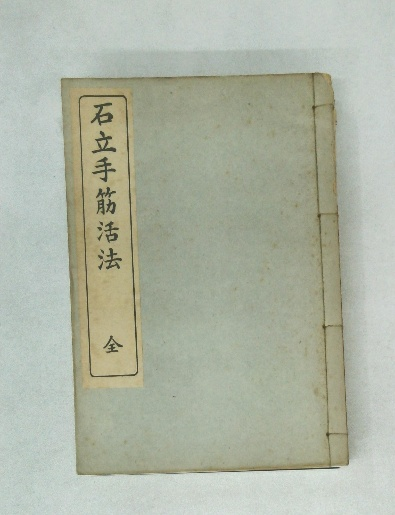 石立手筋活法
全